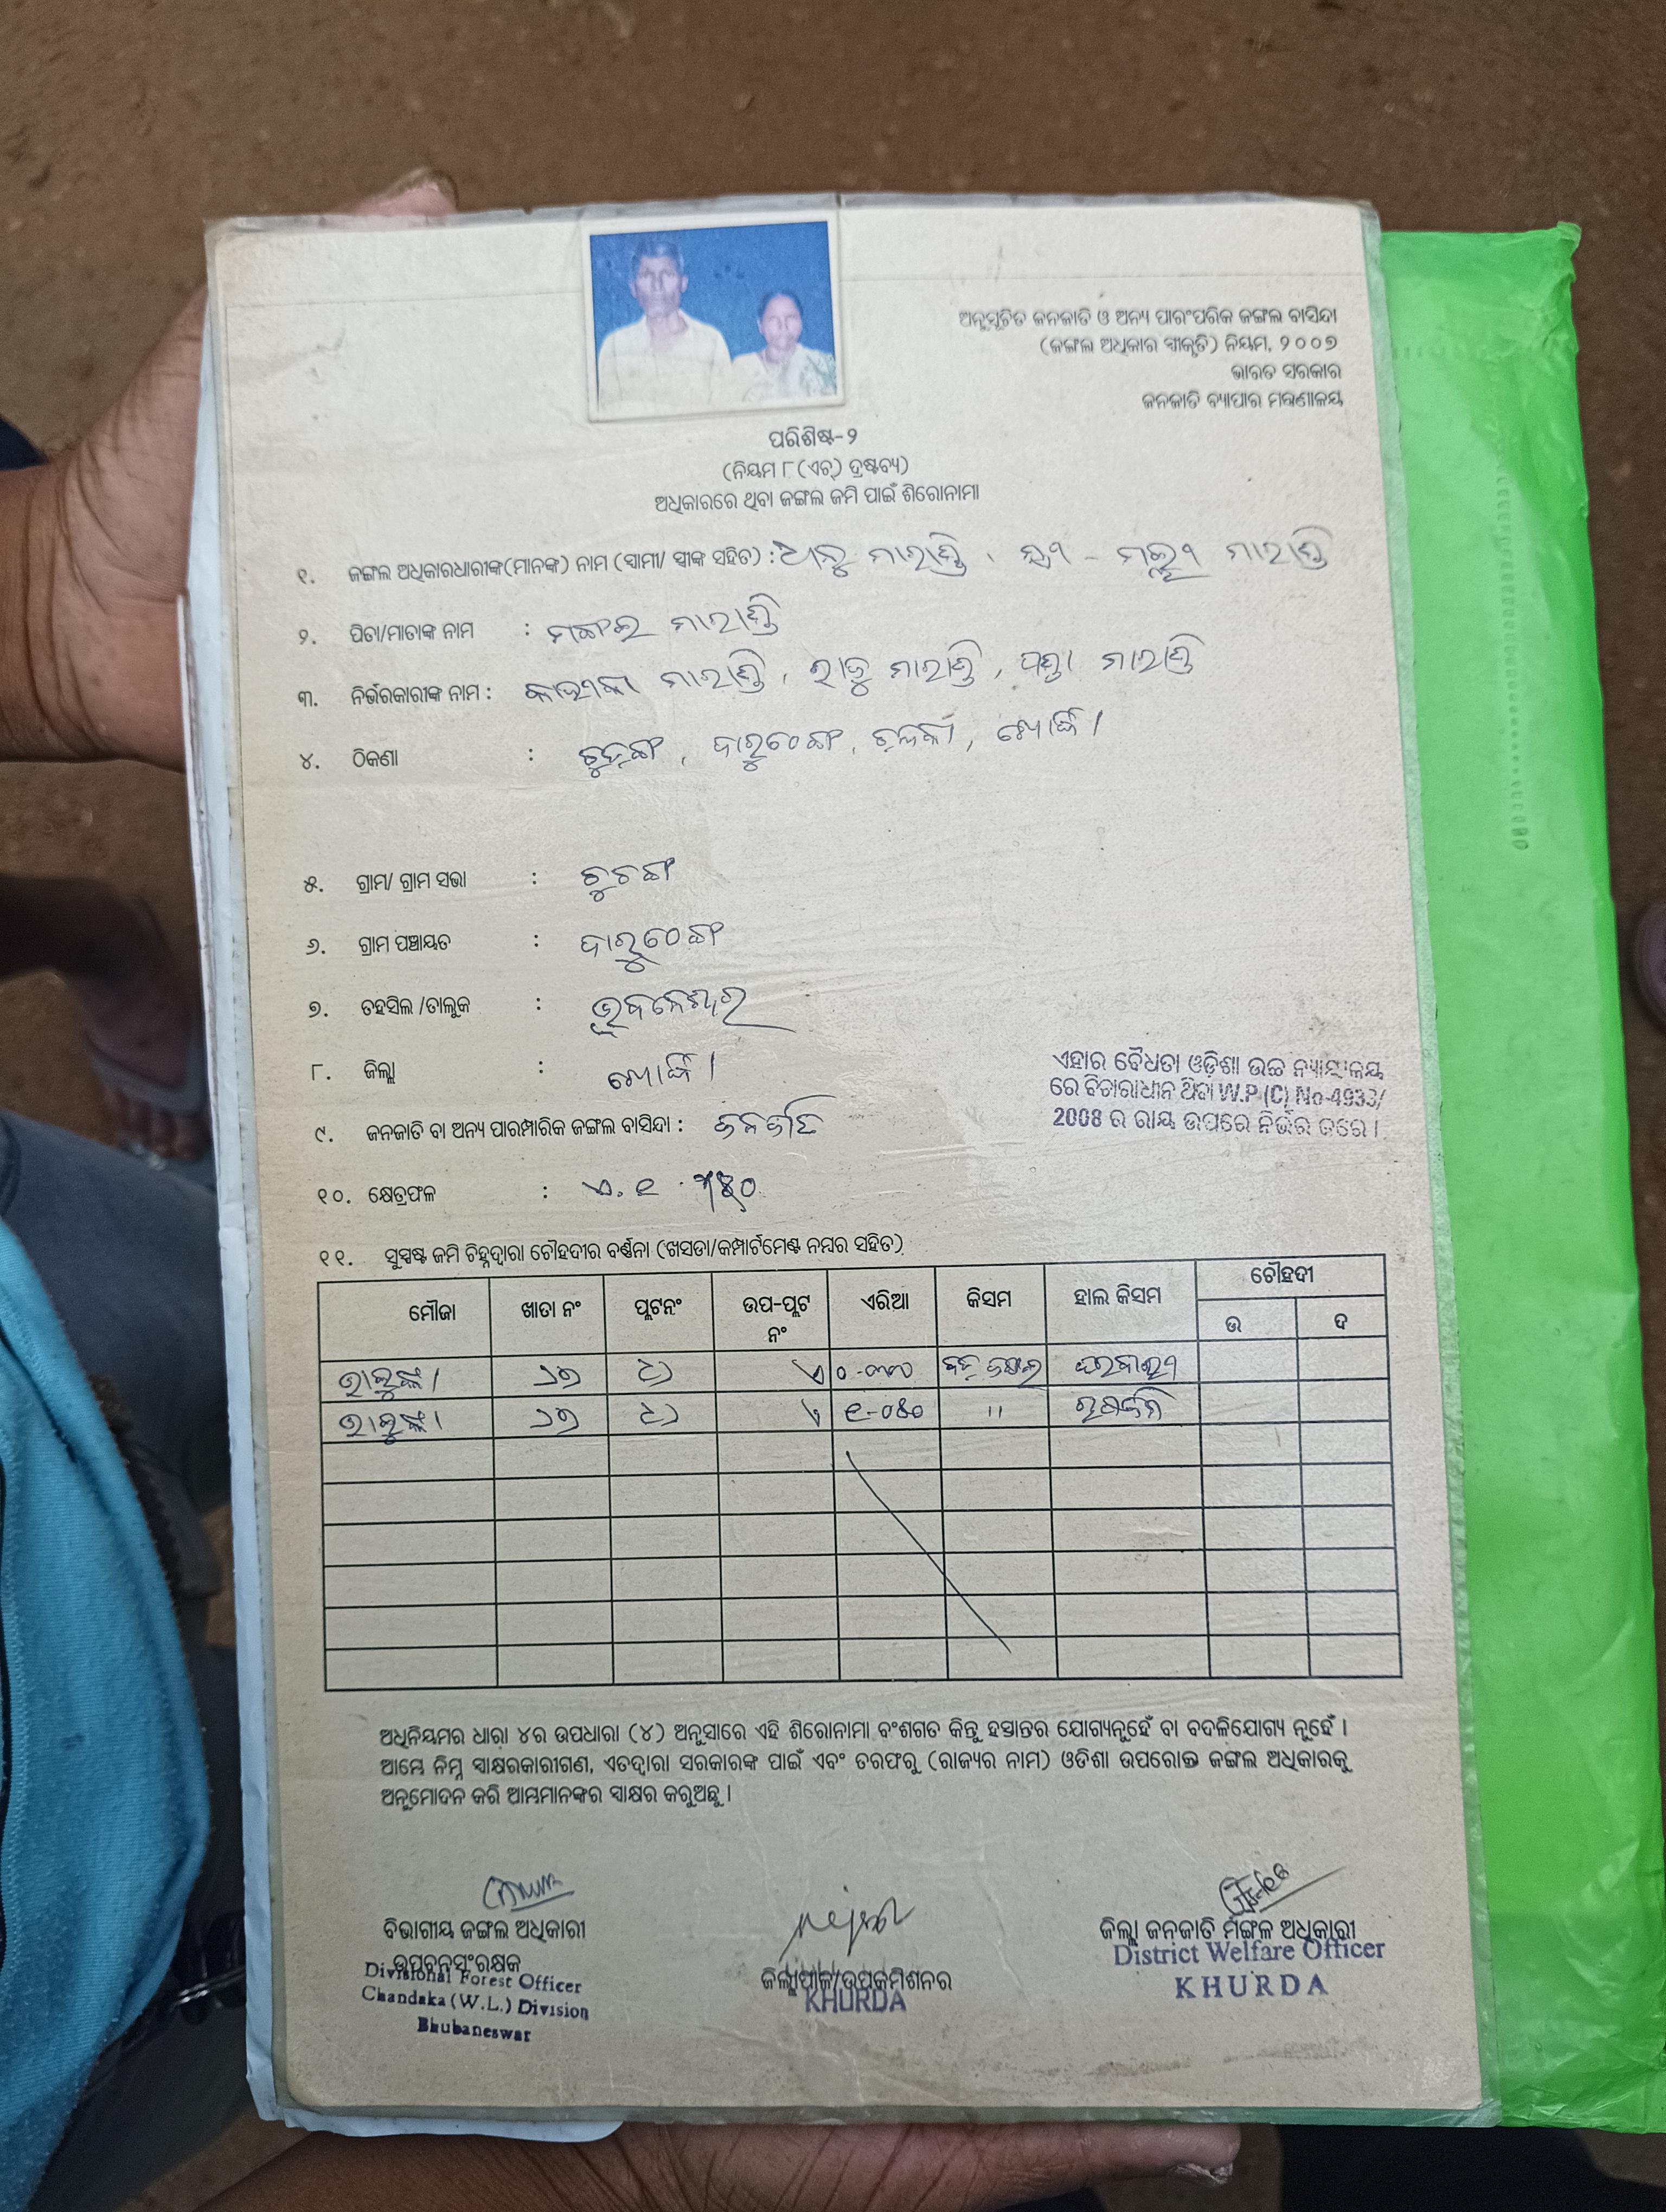 ଅନୁସୂଚିତ ଜନଜାତି ଓ ଅନ୍ୟ ପାରଂପରିକ ଜଙ୍ଗଲ ବାସିନ୍ଦା
(ଜଙ୍ଗଲ ଅଧିକାର ସ୍ୱୀକୃତି) ନିୟମ, ୨୦୦୭
ଭାରତ ସରକାର
ଜନଜାତି ବ୍ୟାପାର ମନ୍ତ୍ରଣାଳୟ
ପରିଶିଷ୍ଟ-୨
(ନିୟମ ୮ (ଏଚ୍) ଦ୍ରଷ୍ଟବ୍ୟ)
ଅଧିକାରରେ ଥିବା ଜଙ୍ଗଲ ଜମି ପାଇଁ ଶିରୋନାମା
୧. ଜଙ୍ଗଲ ଅଧିକାରଧାରୀଙ୍କ(ମାନଙ୍କ) ନାମ (ସ୍ୱାମୀ/ ସ୍ତ୍ରୀଙ୍କ ସହିତ) : ଧାନୁ ମାରାଣ୍ଡି, ସ୍ତ୍ରୀ - ମାରାଣ୍ଡି
୨. ପିତା/ମାତାଙ୍କ ନାମ : ମଙ୍ଗଲ ମାରାଣ୍ଡି
୩. ନିର୍ଭରକାରୀଙ୍କ ନାମ : ମାରାଣ୍ଡି, ରାଜୁ ମାରାଣ୍ଡି, ମାରାଣ୍ଡି
୪. ଠିକଣା : ଦାରୁଠେଙ୍ଗ, ଖୋର୍ଦ୍ଧା
୫. ଗ୍ରାମ/ ଗ୍ରାମ ସଭା :
୬. ଗ୍ରାମ ପଞ୍ଚାୟତ : ଦାରୁଠେଙ୍ଗ
୭. ତହସିଲ /ତାଲୁକ : ଭୁବନେଶ୍ୱର
୮. ଜିଲ୍ଲା : ଖୋର୍ଦ୍ଧା
ଏହାର ବୈଧତା ଓଡ଼ିଶା ଉଚ୍ଚ ନ୍ୟାୟାଳୟ
ରେ ବିଚାରାଧୀନ ଥିବା W.P.(C) No-4933/
2008 ର ରାୟ ଉପରେ ନିର୍ଭର କରେ।
୯. ଜନଜାତି ବା ଅନ୍ୟ ପାରମ୍ପାରିକ ଜଙ୍ଗଲ ବାସିନ୍ଦା : ଜନଜାତି
୧୦. କ୍ଷେତ୍ରଫଳ :
୧୧. ସୁସ୍ପଷ୍ଟ ଜମି ଚିହ୍ନଦ୍ୱାରା ଚୌହଦୀର ବର୍ଣ୍ଣନା (ଖସଡା/କମ୍ପାର୍ଟମେଣ୍ଟ ନମ୍ବର ସହିତ)
ମୌଜା ଖାତା ନଂ ପ୍ଲଟନଂ ଉପ-ପ୍ଲଟ ନଂ ଏରିଆ କିସମ ହାଲ କିସମ ଚୌହଦୀ
ଉ ଦ
ଘରବାରୀ
"
ଅଧିନିୟମର ଧାରା ୪ର ଉପଧାରା (୪) ଅନୁସାରେ ଏହି ଶିରୋନାମା ବଂଶଗତ କିନ୍ତୁ ହସ୍ତାନ୍ତର ଯୋଗ୍ୟନୁହେଁ ବା ବଦଳିଯୋଗ୍ୟ ନୁହେଁ ।
ଆମ୍ଭେ ନିମ୍ନ ସାକ୍ଷରକାରୀଗଣ, ଏତଦ୍ୱାରା ସରକାରଙ୍କ ପାଇଁ ଏବଂ ତରଫରୁ (ରାଜ୍ୟର ନାମ) ଓଡିଶା ଉପରୋକ୍ତ ଜଙ୍ଗଲ ଅଧିକାରକୁ
ଅନୁମୋଦନ କରି ଆମ୍ଭମାନଙ୍କର ସ୍ୱାକ୍ଷର କରୁଅଛୁ ।
ବିଭାଗୀୟ ଜଙ୍ଗଲ ଅଧିକାରୀ
ଉପବନସଂରକ୍ଷକ
Divisional Forest Officer
Chandaka (W.L.) Division
Bhubaneswar
ଜିଲ୍ଲାପାଳ/ଉପକମିଶନର
KHURDA
ଜିଲ୍ଲା ଜନଜାତି ମଙ୍ଗଳ ଅଧିକାରୀ
District Welfare Officer
KHURDA